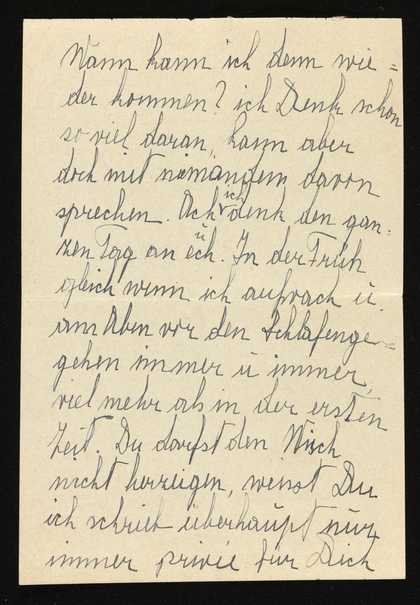 Wann kann ich denn wie=
der kommen? ich Denk schon
so viel daran, kann aber
doch mit niemandem davon
sprechen. Ach ich denk den gan-
zen Tag an euch. In der Früh
gleich wenn ich aufwach u.
am Aben vor den Schlafenge=
gehen immer u immer,
viel mehr als in der ersten
Zeit. Du darfst den Wisch
nicht herzeigen, weisst Du
ich schrieb überhaupt nur
immer für Dich